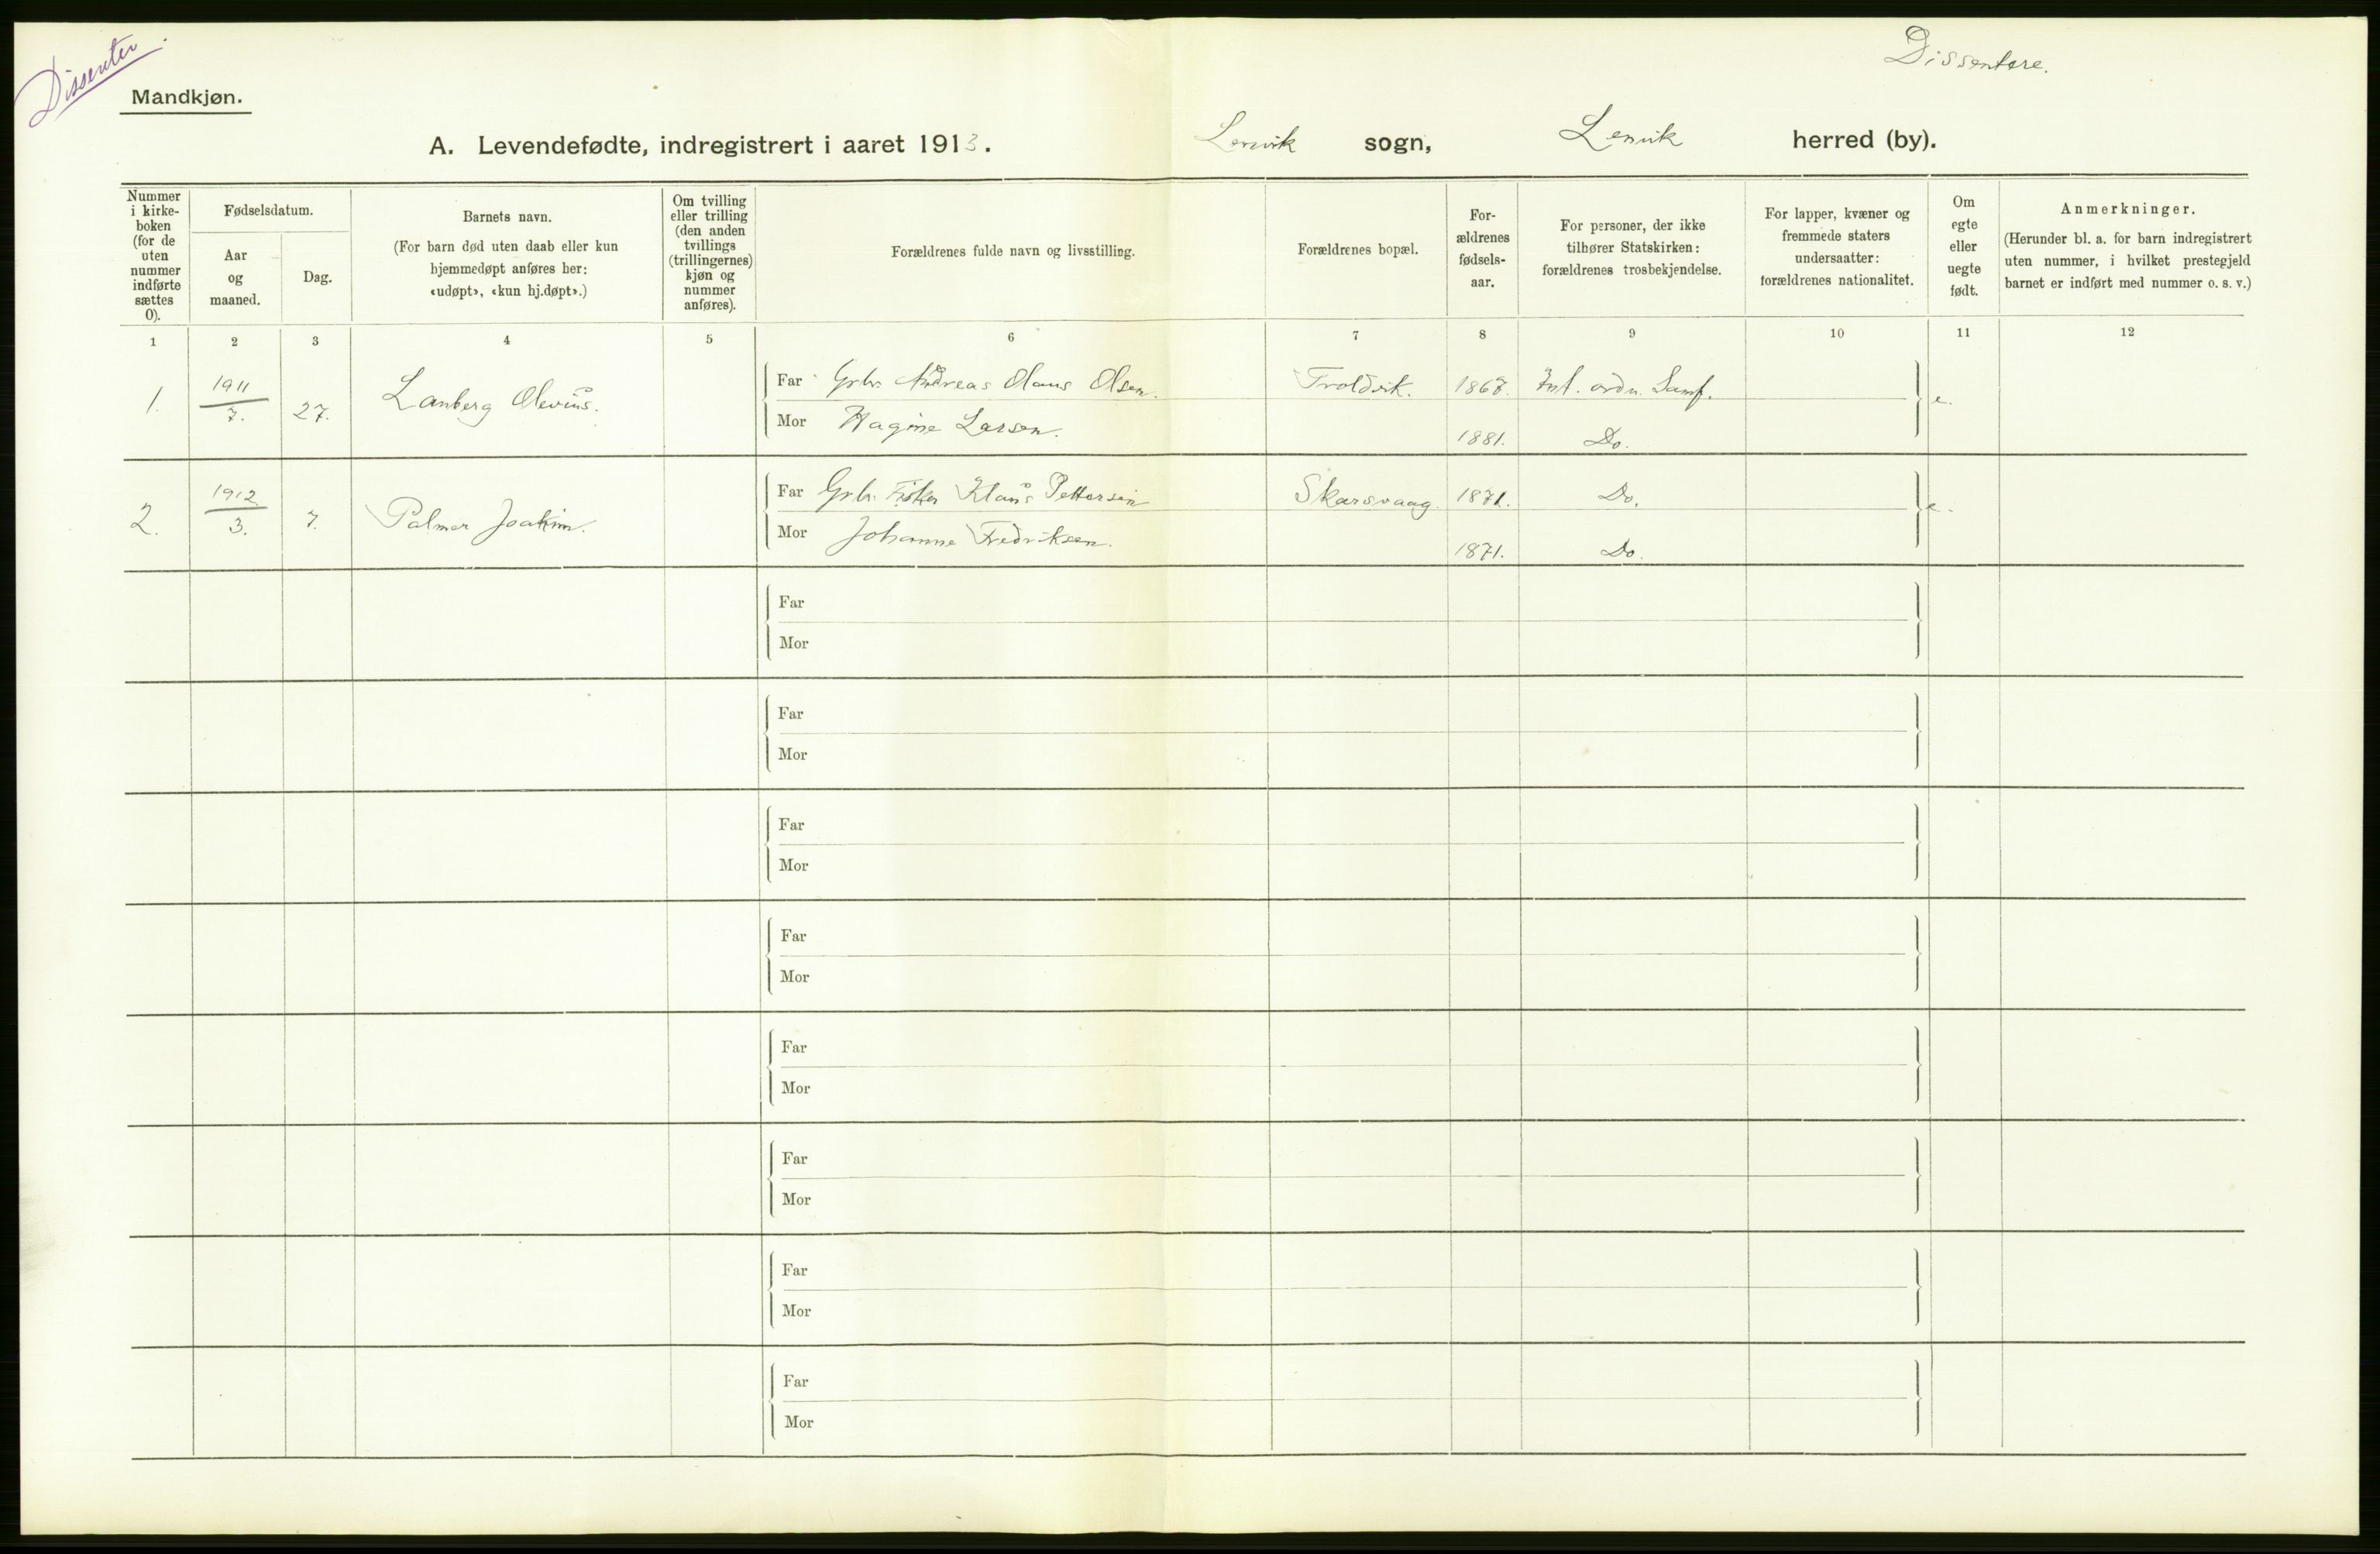 Dissenter.
Dissentere.
Mandkjøn.
A. Levendefødte, indregistrert i aaret 1913. Lenvik sogn, Lenvik herred (by).
Nummer i kirke- boken (for de uten nummer indførte sættes 0).
Fødselsdatum.
Aar og maaned.
Dag.
Barnets navn.
(For barn død uten daab eller kun hjemmedøpt anføres her: «udøpt», «kun hj.døpt».)
Om tvilling eller trilling (den anden tvillings (trillingernes) kjøn og nummer anføres).
Forældrenes fulde navn og livsstilling.
Forældrenes bopæl.
For- ældrenes fødsels- aar.
For personer, der ikke tilhører Statskirken: forældrenes trosbekjendelse.
For lapper, kvæner og fremmede staters undersaatter: forældrenes nationalitet.
Om egte eller uegte født.
Anmerkninger.
(Herunder bl. a. for barn indregistrert uten nummer, i hvilket prestegjeld barnet er indført med nummer o. s. v.)
1 2 3 4 5 6 7 8 9 10 11 12
1. 1911/7. 27. Lanberg Olevius. Far Grbr. Andreas Olaus Olsen. Troldvik. 1867. Int. ordn. Samf. e.
Mor Hagine Larsen. 1881. Do.
2. 1912/3. 7. Palmer Joakim. Far Grbr. Fisker Klaus Pettersen Skarsvaag. 1871. Do. e.
Mor Johanne Fredriksen. 1871. Do.
Far
Mor
Far
Mor
Far
Mor
Far
Mor
Far
Mor
Far
Mor
Far
Mor
Far
Mor